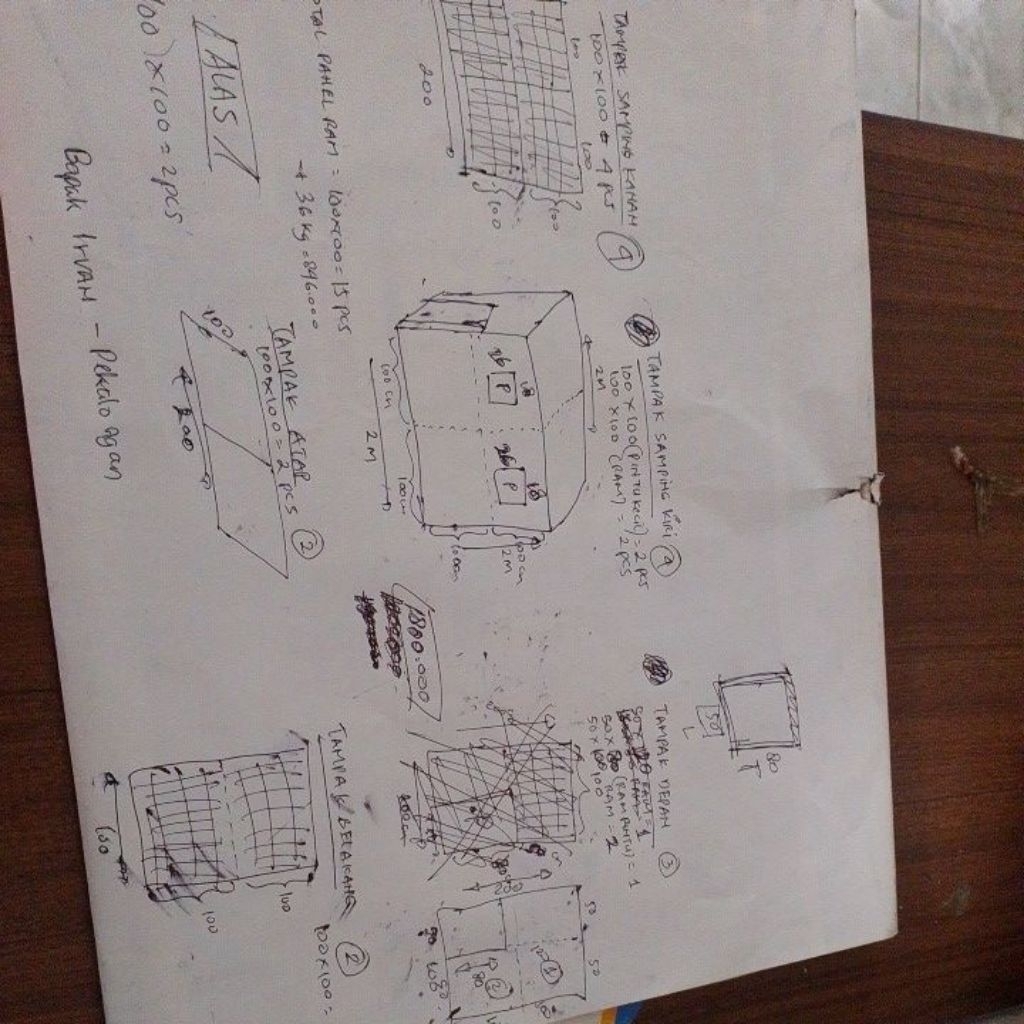 TAMPAK SAMPING KANAN
- 100 x 100 = 4 pcs
4
100
100
100
100
200
TOTAL PANEL RAM = 100x100 = 15 pcs
→ 36 kg = 846.000
ALAS
100) x 100 = 2 pcs
Bapak IrVAN - Pekalongan
TAMPAK SAMPING KIRI
4
100 x 100 (PINTU KECIL) = 2 pcs
100 x 100 (RAM) = 2 pcs
2M
P
P
100 cm
100 cm
2 M
100 cm
2 M
100 cm
TAMPAK ATAP
2
100x100 = 2 pcs
100
200
1800.000
50
80
T
L
TAMPAK DEPAN
3
50 x 80 (RAM PINTU) = 1
50 x 100 RAM - 2
50
50
80
TAMPAK BELAKANG
2
100x100 =
100
100
100